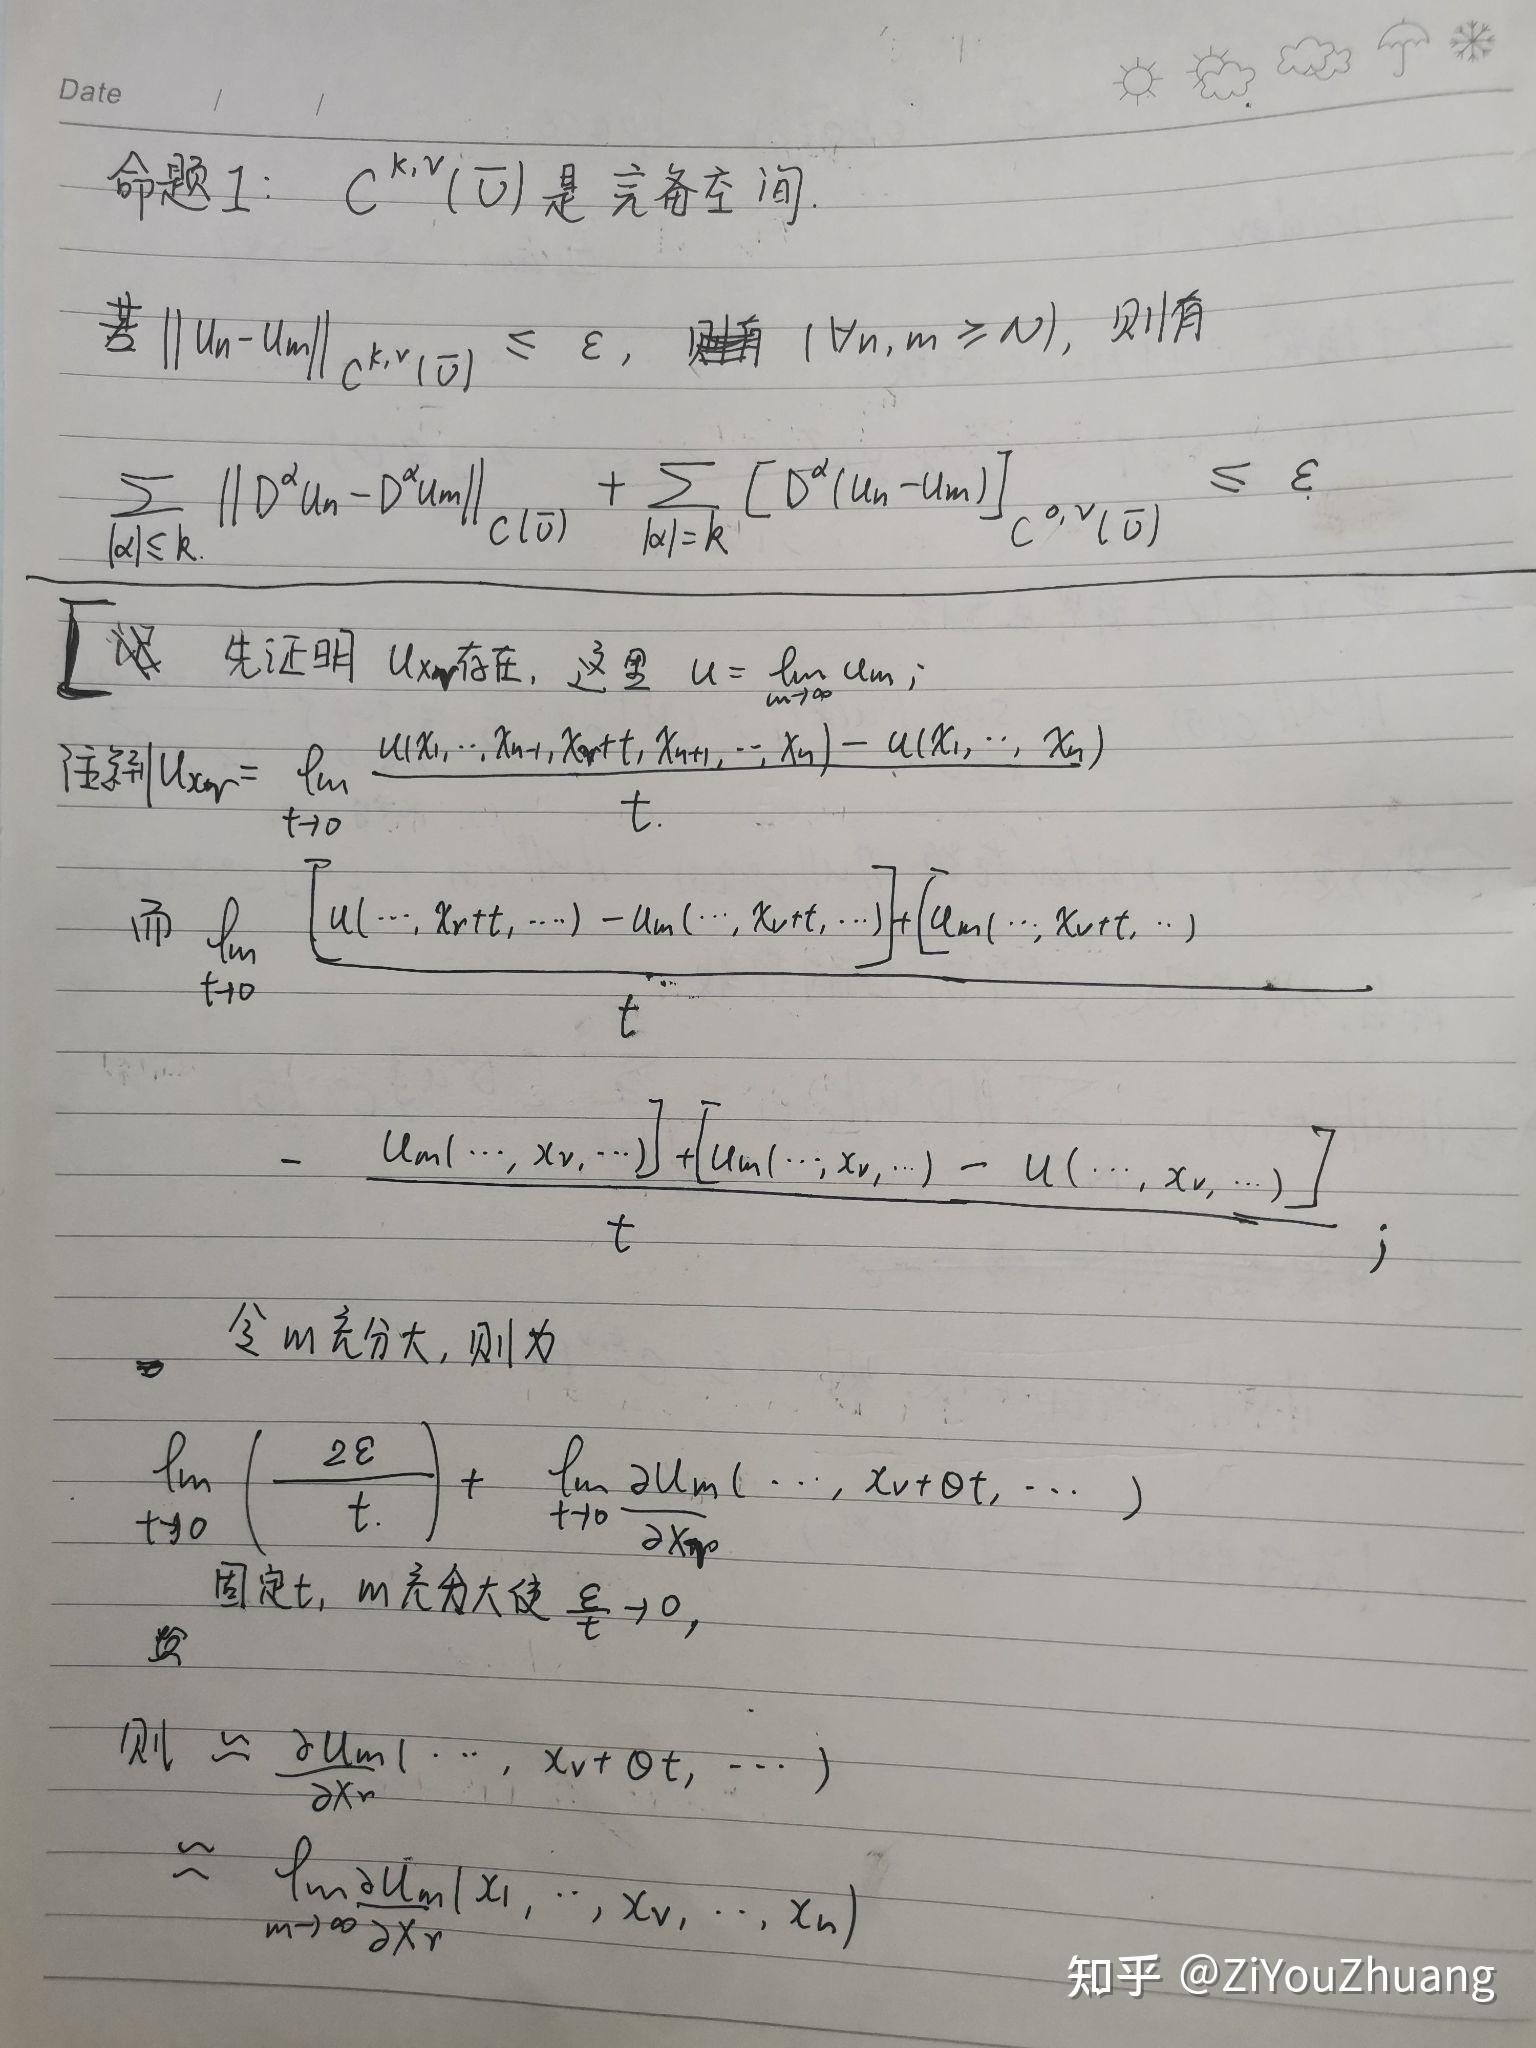 Date / /
命题1: C^{k,γ}(Ū)是完备空间.
若||u_n-u_m||_{C^{k,γ}(Ū)} ≤ ε, (∀n,m≥N), 则有
∑_{|α|≤k.} ||D^αu_n-D^αu_m||_{C(Ū)} + ∑_{|α|=k} [D^α(u_n-u_m)]_{C^{0,γ}(Ū)} ≤ ε
先证明 u_{x_r}存在, 这里 u=lim_{m→∞} u_m;
注意到u_{x_r}= lim_{t→0} (u(x_1,..,x_{n-1},x_r+t,x_{n+1},..,x_n)-u(x_1,..,x_n))/t.
而 lim_{t→0} ([u(…,x_r+t,….)-u_m(…,x_r+t,…)]+[u_m(…,x_r+t,..)/t
- u_m(…,x_r,…)]+[u_m(…,x_r,…) - u(…,x_r,…)]/t ;
令m充分大,则为
lim_{t→0} (2ε/t.) + lim_{t→0} ∂u_m/∂x_r (…,x_r+θt,… )
固定t, m充分大使 ε/t→0,
则 ≈ ∂u_m/∂x_r (…, x_r+θt, …)
≈ lim_{m→∞} ∂u_m/∂x_r (x_1,..,x_r,..,x_n)
知乎 @ZiYouZhuang